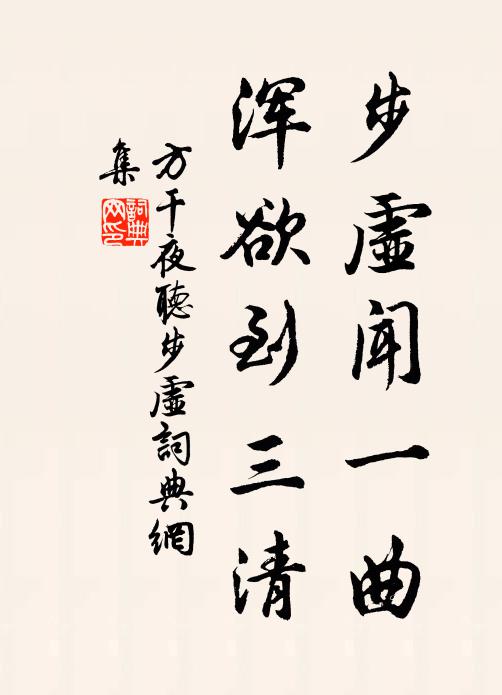 步虛闻一曲
浑欲到三清
方干夜聽步虛詞典網
集
詞典网印